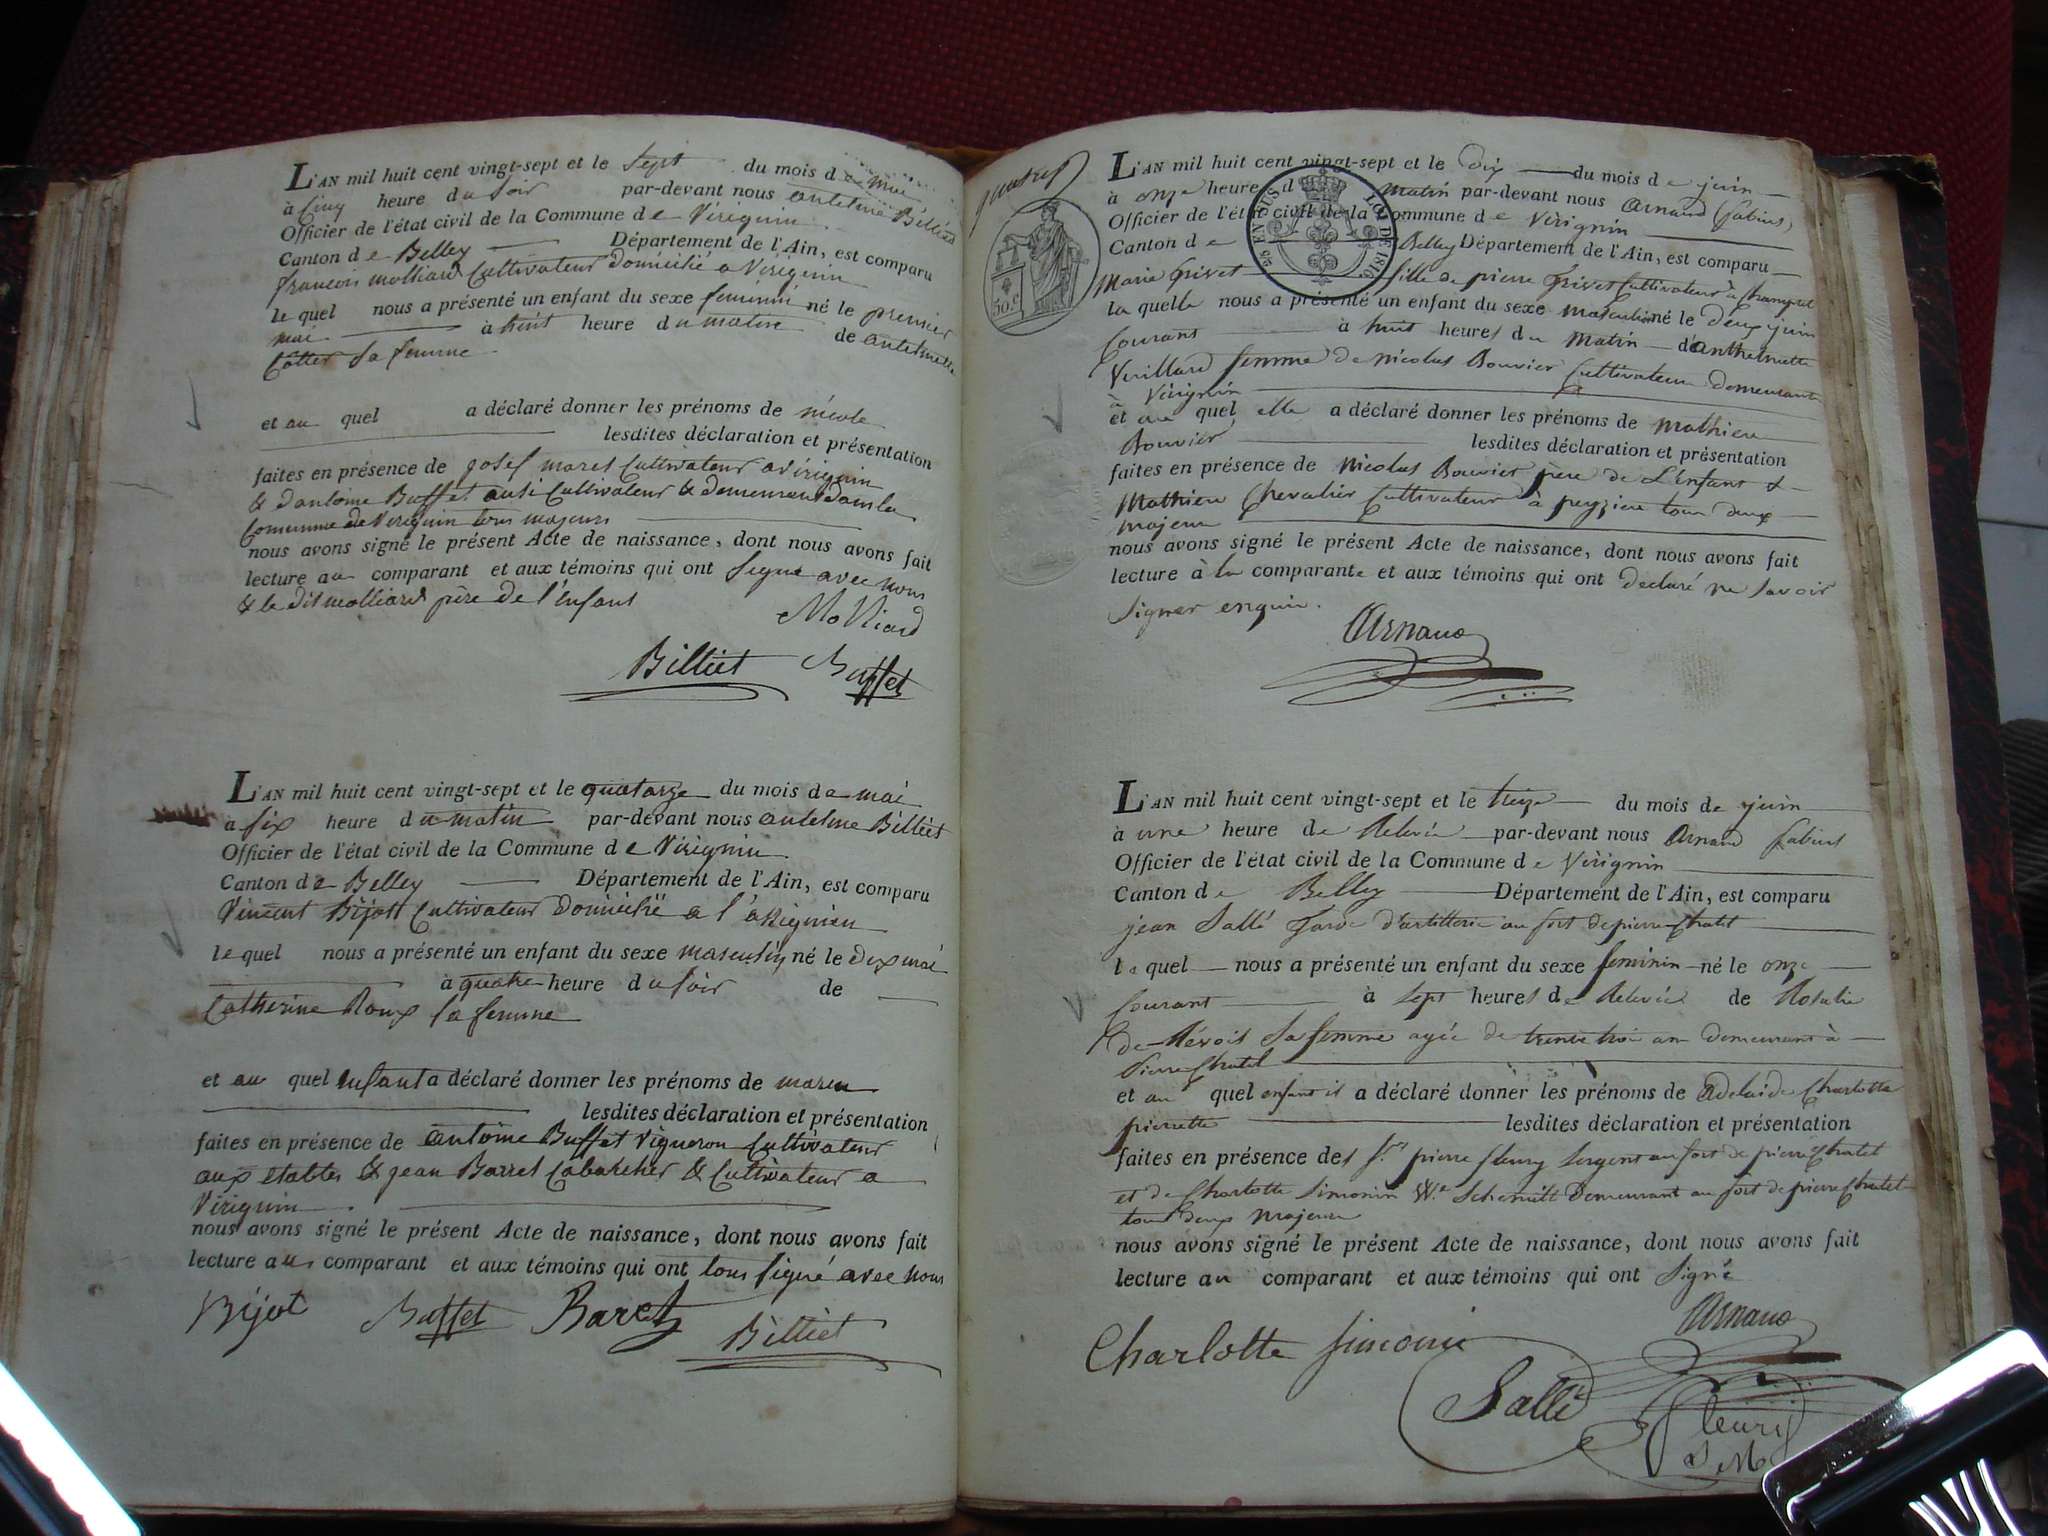 L'AN mil huit cent vingt-sept et le Sept du mois de mai
à Cinq heure du Soir par-devant nous antelme Billiet
Officier de l'état civil de la Commune de Virignin
Canton de Belley Département de l'Ain, est comparu
francois molliard Cultivateur domicilié a Virignin
le quel nous a présenté un enfant du sexe feminin né le premier
mai à huit heure du matin de antelmette
Cotter Sa femme
et au quel a déclaré donner les prénoms de nicole
lesdites déclaration et présentation
faites en présence de josef maret Cultivateur a Virignin
& dantoine Buffet ausi Cultivateur & demeurant dans la
Commune de Virignin tous majeurs
nous avons signé le présent Acte de naissance, dont nous avons fait
lecture au comparant et aux témoins qui ont Signé avec nous
& le dit molliard père de l'enfant
Molliard
Billiet Buffet
L'AN mil huit cent vingt-sept et le quatorze du mois de mai
a Six heure du matin par-devant nous antelme Billiet
Officier de l'état civil de la Commune de Virignin
Canton de Belley Département de l'Ain, est comparu
Vincent Bijot Cultivateur domicilié a
le quel nous a présenté un enfant du sexe masculin né le dix mai
à quatre heure du Soir de
Catherine Roux Sa femme
et au quel enfant a déclaré donner les prénoms de
lesdites déclaration et présentation
faites en présence de antoine Buffet Vigneron Cultivateur
aux etables & jean Barret Cabaretier & Cultivateur a
Virignin
nous avons signé le présent Acte de naissance, dont nous avons fait
lecture au comparant et aux témoins qui ont tous Signé avec nous
Bijot Buffet Baret
Billiet
30.c
EN SUS LOI DE 1816
L'AN mil huit cent vingt-sept et le dix du mois de juin
à onze heure d matin par-devant nous Arnaud Gabins
Officier de l'état civil de la Commune de Virignin
Canton de Belley Département de l'Ain, est comparu
Marie Trivet fille de pierre Trivet Cultivateur à
la quelle nous a présenté un enfant du sexe masculin né le deux juin
Courant à huit heures du Matin d'Anthelmette
Vuillard femme de nicolas Bouvier Cultivateur demeurant
à Virignin
et au quel elle a déclaré donner les prénoms de Mathieu
Bouvier lesdites déclaration et présentation
faites en présence de Nicolas Bouvier père de L'enfant &
Mathieu Chevalier Cultivateur à peyzieu tous deux
majeur
nous avons signé le présent Acte de naissance, dont nous avons fait
lecture à la comparante et aux témoins qui ont declaré ne Savoir
Signer enquis.
Arnaud
L'AN mil huit cent vingt-sept et le treize du mois de juin
à une heure de Relevée par-devant nous Arnaud Gabins
Officier de l'état civil de la Commune de Virignin
Canton de Belley Département de l'Ain, est comparu
jean Sallé Garde d'artillerie au fort de pierre Chatel
le quel nous a présenté un enfant du sexe feminin né le onze
Courant à Sept heures de Relevée de Rosalie
Sa femme agée de trente trois an demeurant à
Pierre Chatel
et au quel enfant il a déclaré donner les prénoms de Adelaide Charlotte
pierrette lesdites déclaration et présentation
faites en présence des S.rs pierre fleury Sergent au fort de pierre Chatel
et de Charlotte Simonin V.e Schmitt Demeurant au fort de pierre Chatel
tous deux Majeurs
nous avons signé le présent Acte de naissance, dont nous avons fait
lecture au comparant et aux témoins qui ont Signé
Arnaud
Charlotte Simonin
Sallé
fleury